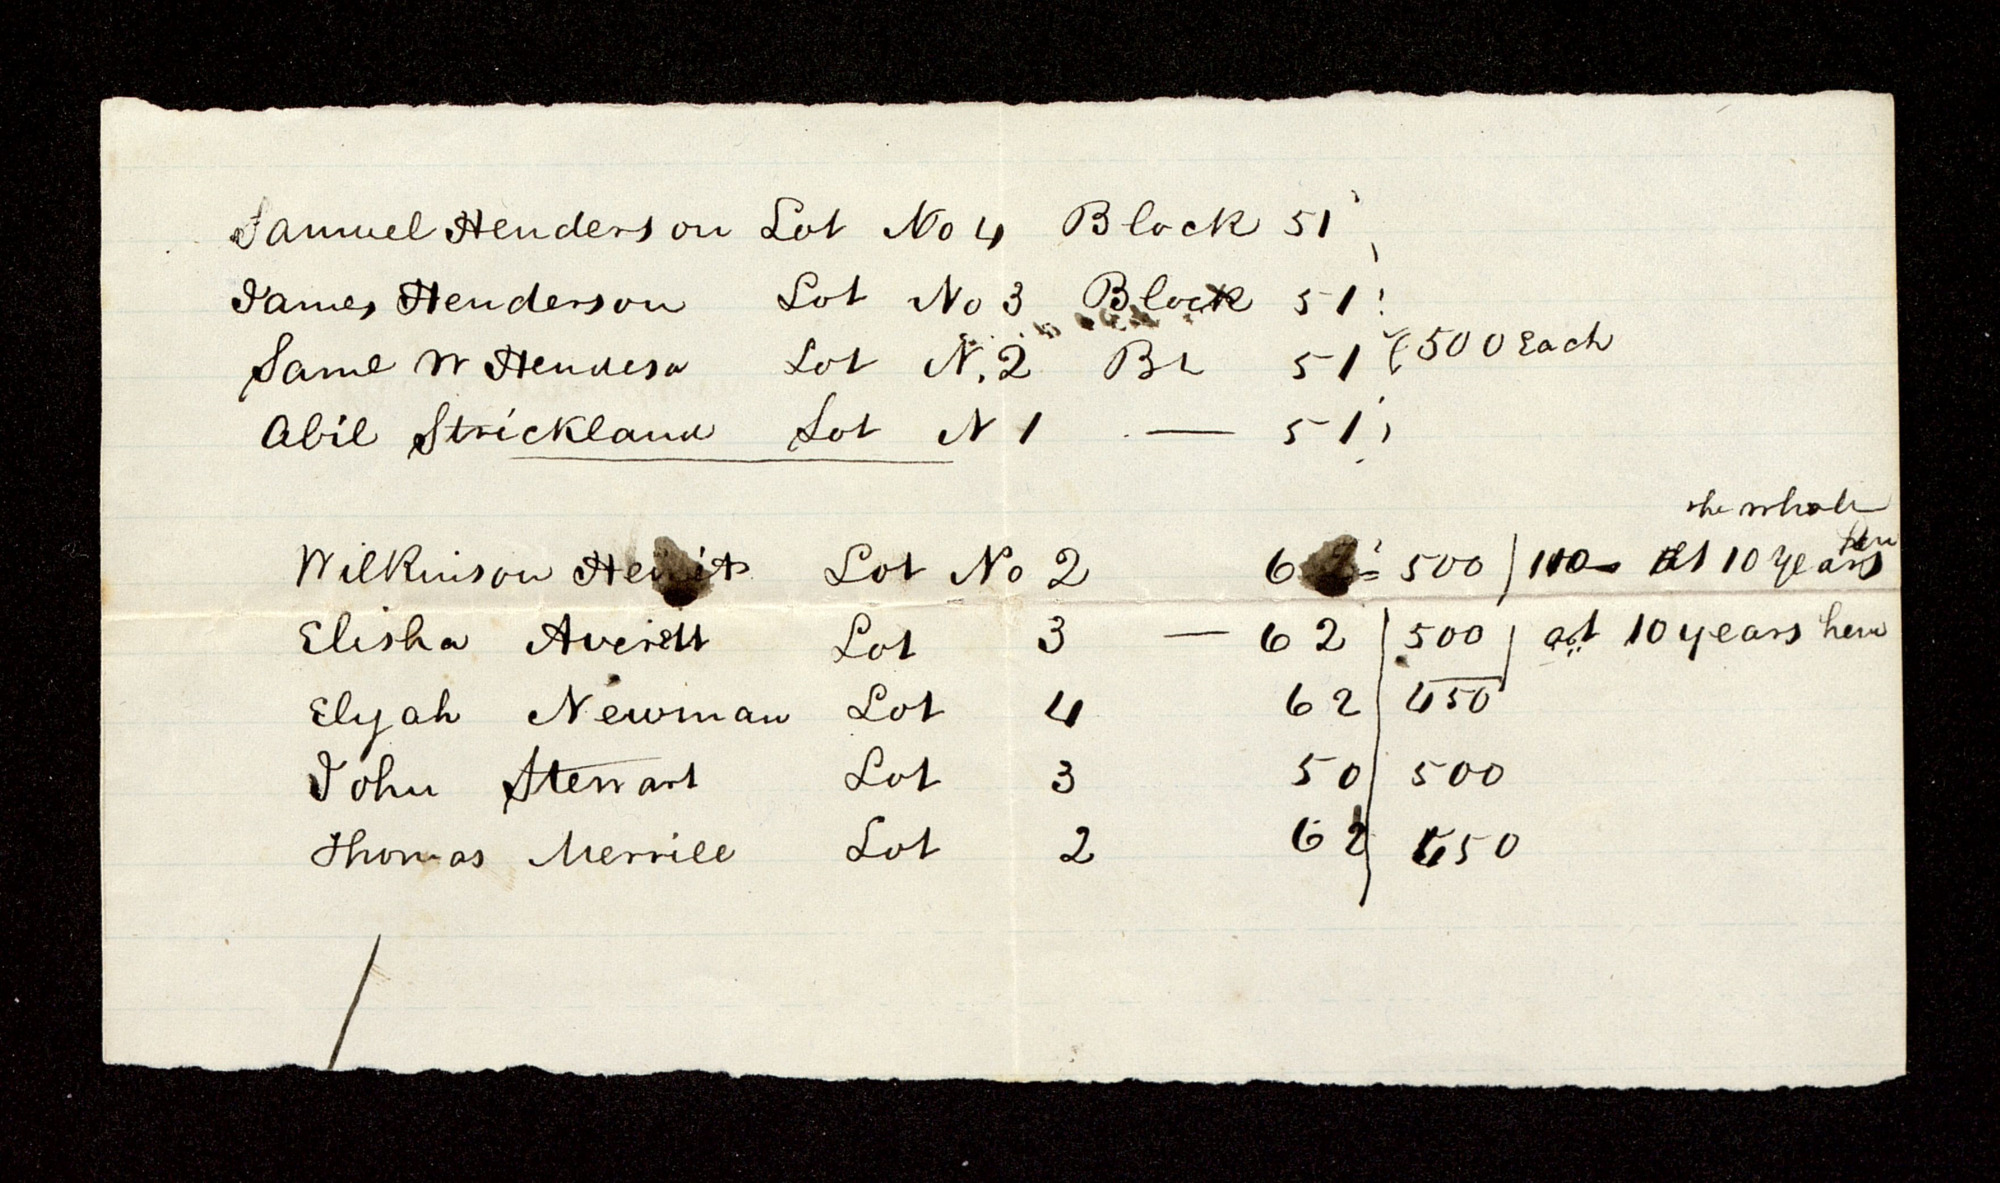 Samuel Henderson Lot No 4 Block 51
James Henderson Lot No 3 Block 51
Saml W Hendesn Lot N. 2 Bl 51 { 500 Each
Abil Strickland Lot N 1 — 51
the whole
Wilkinson Lot No 2 500 at 10 years
Elisha Averett Lot 3 — 62 500 at 10 years here
Elijah Newman Lot 4 62 450
John Stewart Lot 3 50 500
Thomas Merrill Lot 2 62 450